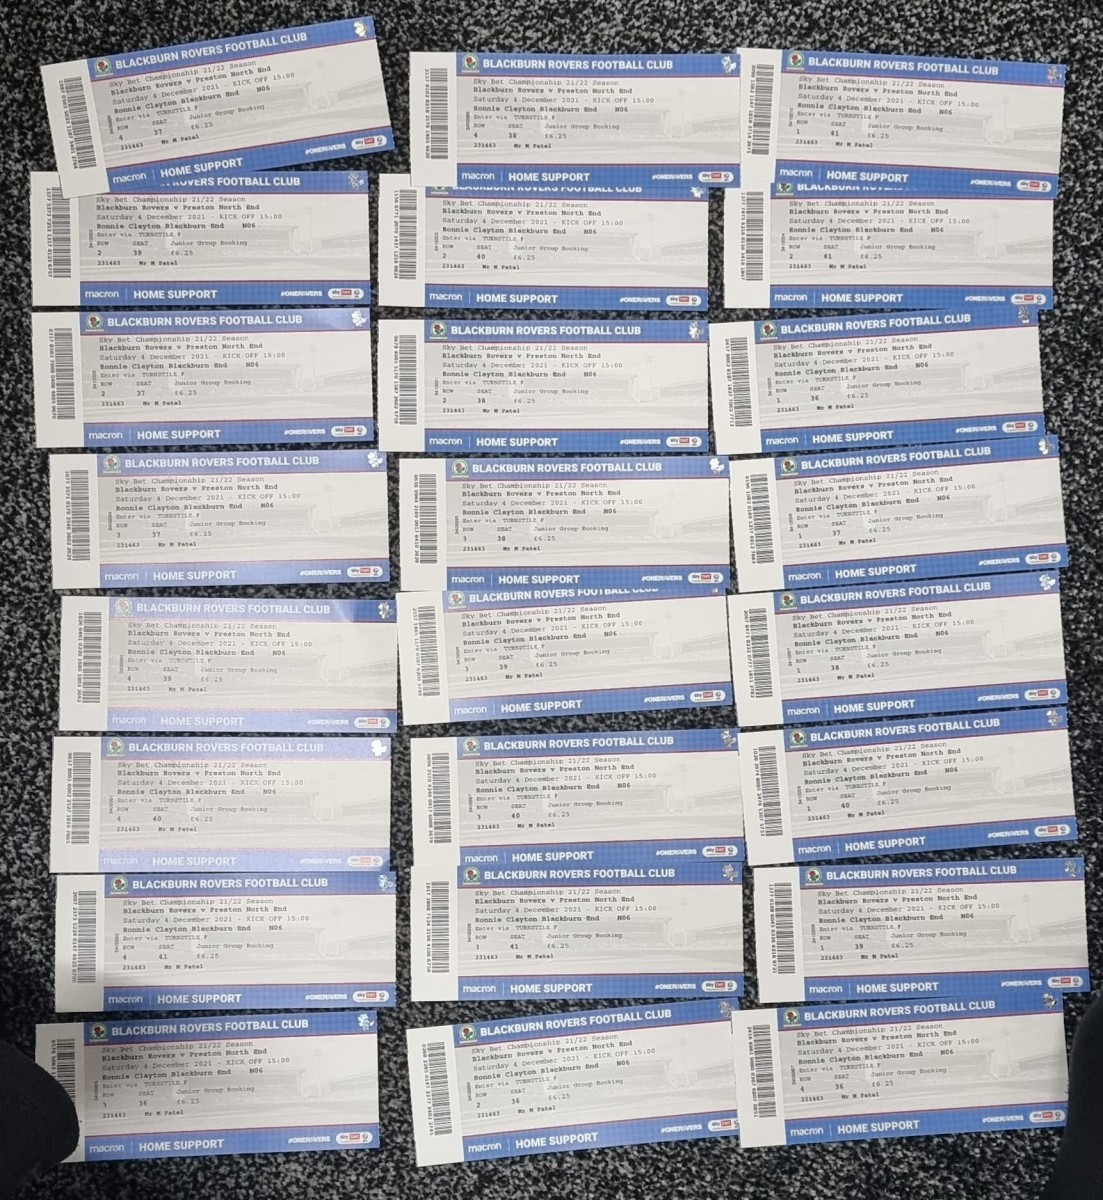 BLACKBURN ROVERS FOOTBALL CLUB
Sky Bet Championship 21/22 Season
Blackburn Rovers v Preston North End
Saturday 4 December 2021 - KICK OFF 15:00
Ronnie Clayton Blackburn End N06
Enter via TURNSTILE F
ROW SEAT Junior Group Booking
4 37 £6.25
231463 Mr M Patel
macron HOME SUPPORT #ONEROVERS sky bet
BLACKBURN ROVERS FOOTBALL CLUB
Sky Bet Championship 21/22 Season
Blackburn Rovers v Preston North End
Saturday 4 December 2021 - KICK OFF 15:00
Ronnie Clayton Blackburn End N06
Enter via TURNSTILE F
ROW SEAT Junior Group Booking
4 38 £6.25
231463 Mr M Patel
macron HOME SUPPORT #ONEROVERS sky bet
BLACKBURN ROVERS FOOTBALL CLUB
Sky Bet Championship 21/22 Season
Blackburn Rovers v Preston North End
Saturday 4 December 2021 - KICK OFF 15:00
Ronnie Clayton Blackburn End N06
Enter via TURNSTILE F
ROW SEAT Junior Group Booking
1 41 £6.25
231463 Mr M Patel
macron HOME SUPPORT #ONEROVERS sky bet
ROVERS FOOTBALL CLUB
Sky Bet Championship 21/22 Season
Blackburn Rovers v Preston North End
Saturday 4 December 2021 - KICK OFF 15:00
Ronnie Clayton Blackburn End N06
Enter via TURNSTILE F
ROW SEAT Junior Group Booking
2 39 £6.25
231463 Mr M Patel
macron HOME SUPPORT #ONEROVERS sky bet
BLACKBURN ROVERS FOOTBALL CLUB
Sky Bet Championship 21/22 Season
Blackburn Rovers v Preston North End
Saturday 4 December 2021 - KICK OFF 15:00
Ronnie Clayton Blackburn End N06
Enter via TURNSTILE F
ROW SEAT Junior Group Booking
2 40 £6.25
231463 Mr M Patel
macron HOME SUPPORT #ONEROVERS sky bet
BLACKBURN
Sky Bet Championship 21/22 Season
Blackburn Rovers v Preston North End
Saturday 4 December 2021 - KICK OFF 15:00
Ronnie Clayton Blackburn End N06
Enter via TURNSTILE F
ROW SEAT Junior Group Booking
2 41 £6.25
231463 Mr M Patel
macron HOME SUPPORT #ONEROVERS sky bet
BLACKBURN ROVERS FOOTBALL CLUB
Sky Bet Championship 21/22 Season
Blackburn Rovers v Preston North End
Saturday 4 December 2021 - KICK OFF 15:00
Ronnie Clayton Blackburn End N06
Enter via TURNSTILE F
ROW SEAT Junior Group Booking
2 37 £6.25
231463 Mr M Patel
macron HOME SUPPORT #ONEROVERS sky bet
BLACKBURN ROVERS FOOTBALL CLUB
Sky Bet Championship 21/22 Season
Blackburn Rovers v Preston North End
Saturday 4 December 2021 - KICK OFF 15:00
Ronnie Clayton Blackburn End N06
Enter via TURNSTILE F
ROW SEAT Junior Group Booking
2 38 £6.25
231463 Mr M Patel
macron HOME SUPPORT #ONEROVERS sky bet
BLACKBURN ROVERS FOOTBALL CLUB
Sky Bet Championship 21/22 Season
Blackburn Rovers v Preston North End
Saturday 4 December 2021 - KICK OFF 15:00
Ronnie Clayton Blackburn End N06
Enter via TURNSTILE F
ROW SEAT Junior Group Booking
1 36 £6.25
231463 Mr M Patel
macron HOME SUPPORT #ONEROVERS sky bet
BLACKBURN ROVERS FOOTBALL CLUB
Sky Bet Championship 21/22 Season
Blackburn Rovers v Preston North End
Saturday 4 December 2021 - KICK OFF 15:00
Ronnie Clayton Blackburn End N06
Enter via TURNSTILE F
ROW SEAT Junior Group Booking
3 37 £6.25
231463 Mr M Patel
macron HOME SUPPORT #ONEROVERS sky bet
BLACKBURN ROVERS FOOTBALL CLUB
Sky Bet Championship 21/22 Season
Blackburn Rovers v Preston North End
Saturday 4 December 2021 - KICK OFF 15:00
Ronnie Clayton Blackburn End N06
Enter via TURNSTILE F
ROW SEAT Junior Group Booking
3 38 £6.25
231463 Mr M Patel
macron HOME SUPPORT #ONEROVERS sky bet
BLACKBURN ROVERS FOOTBALL CLUB
Sky Bet Championship 21/22 Season
Blackburn Rovers v Preston North End
Saturday 4 December 2021 - KICK OFF 15:00
Ronnie Clayton Blackburn End N06
Enter via TURNSTILE F
ROW SEAT Junior Group Booking
1 37 £6.25
231463 Mr M Patel
macron HOME SUPPORT #ONEROVERS sky bet
BLACKBURN ROVERS FOOTBALL CLUB
Sky Bet Championship 21/22 Season
Blackburn Rovers v Preston North End
Saturday 4 December 2021 - KICK OFF 15:00
Ronnie Clayton Blackburn End N06
Enter via TURNSTILE F
ROW SEAT Junior Group Booking
4 39 £6.25
231463 Mr M Patel
macron HOME SUPPORT #ONEROVERS sky bet
BLACKBURN ROVERS FOOTBALL CLUB
Sky Bet Championship 21/22 Season
Blackburn Rovers v Preston North End
Saturday 4 December 2021 - KICK OFF 15:00
Ronnie Clayton Blackburn End N06
Enter via TURNSTILE F
ROW SEAT Junior Group Booking
3 39 £6.25
231463 Mr M Patel
macron HOME SUPPORT #ONEROVERS sky bet
BLACKBURN ROVERS FOOTBALL CLUB
Sky Bet Championship 21/22 Season
Blackburn Rovers v Preston North End
Saturday 4 December 2021 - KICK OFF 15:00
Ronnie Clayton Blackburn End N06
Enter via TURNSTILE F
ROW SEAT Junior Group Booking
1 38 £6.25
231463 Mr M Patel
macron HOME SUPPORT #ONEROVERS sky bet
BLACKBURN ROVERS FOOTBALL CLUB
Sky Bet Championship 21/22 Season
Blackburn Rovers v Preston North End
Saturday 4 December 2021 - KICK OFF 15:00
Ronnie Clayton Blackburn End N06
Enter via TURNSTILE F
ROW SEAT Junior Group Booking
4 40 £6.25
231463 Mr M Patel
macron HOME SUPPORT #ONEROVERS sky bet
BLACKBURN ROVERS FOOTBALL CLUB
Sky Bet Championship 21/22 Season
Blackburn Rovers v Preston North End
Saturday 4 December 2021 - KICK OFF 15:00
Ronnie Clayton Blackburn End N06
Enter via TURNSTILE F
ROW SEAT Junior Group Booking
3 40 £6.25
231463 Mr M Patel
macron HOME SUPPORT #ONEROVERS sky bet
BLACKBURN ROVERS FOOTBALL CLUB
Sky Bet Championship 21/22 Season
Blackburn Rovers v Preston North End
Saturday 4 December 2021 - KICK OFF 15:00
Ronnie Clayton Blackburn End N06
Enter via TURNSTILE F
ROW SEAT Junior Group Booking
1 40 £6.25
231463 Mr M Patel
macron HOME SUPPORT #ONEROVERS sky bet
BLACKBURN ROVERS FOOTBALL CLUB
Sky Bet Championship 21/22 Season
Blackburn Rovers v Preston North End
Saturday 4 December 2021 - KICK OFF 15:00
Ronnie Clayton Blackburn End N06
Enter via TURNSTILE F
ROW SEAT Junior Group Booking
4 41 £6.25
231463 Mr M Patel
macron HOME SUPPORT #ONEROVERS sky bet
BLACKBURN ROVERS FOOTBALL CLUB
Sky Bet Championship 21/22 Season
Blackburn Rovers v Preston North End
Saturday 4 December 2021 - KICK OFF 15:00
Ronnie Clayton Blackburn End N06
Enter via TURNSTILE F
ROW SEAT Junior Group Booking
3 41 £6.25
231463 Mr M Patel
macron HOME SUPPORT #ONEROVERS sky bet
BLACKBURN ROVERS FOOTBALL CLUB
Sky Bet Championship 21/22 Season
Blackburn Rovers v Preston North End
Saturday 4 December 2021 - KICK OFF 15:00
Ronnie Clayton Blackburn End N06
Enter via TURNSTILE F
ROW SEAT Junior Group Booking
1 39 £6.25
231463 Mr M Patel
macron HOME SUPPORT #ONEROVERS sky bet
BLACKBURN ROVERS FOOTBALL CLUB
Sky Bet Championship 21/22 Season
Blackburn Rovers v Preston North End
Saturday 4 December 2021 - KICK OFF 15:00
Ronnie Clayton Blackburn End N06
Enter via TURNSTILE F
ROW SEAT Junior Group Booking
3 36 £6.25
231463 Mr M Patel
macron HOME SUPPORT #ONEROVERS sky bet
BLACKBURN ROVERS FOOTBALL CLUB
Sky Bet Championship 21/22 Season
Blackburn Rovers v Preston North End
Saturday 4 December 2021 - KICK OFF 15:00
Ronnie Clayton Blackburn End N06
Enter via TURNSTILE F
ROW SEAT Junior Group Booking
2 36 £6.25
231463 Mr M Patel
macron HOME SUPPORT #ONEROVERS sky bet
BLACKBURN ROVERS FOOTBALL CLUB
Sky Bet Championship 21/22 Season
Blackburn Rovers v Preston North End
Saturday 4 December 2021 - KICK OFF 15:00
Ronnie Clayton Blackburn End N06
Enter via TURNSTILE F
ROW SEAT Junior Group Booking
4 36 £6.25
231463 Mr M Patel
macron HOME SUPPORT #ONEROVERS sky bet